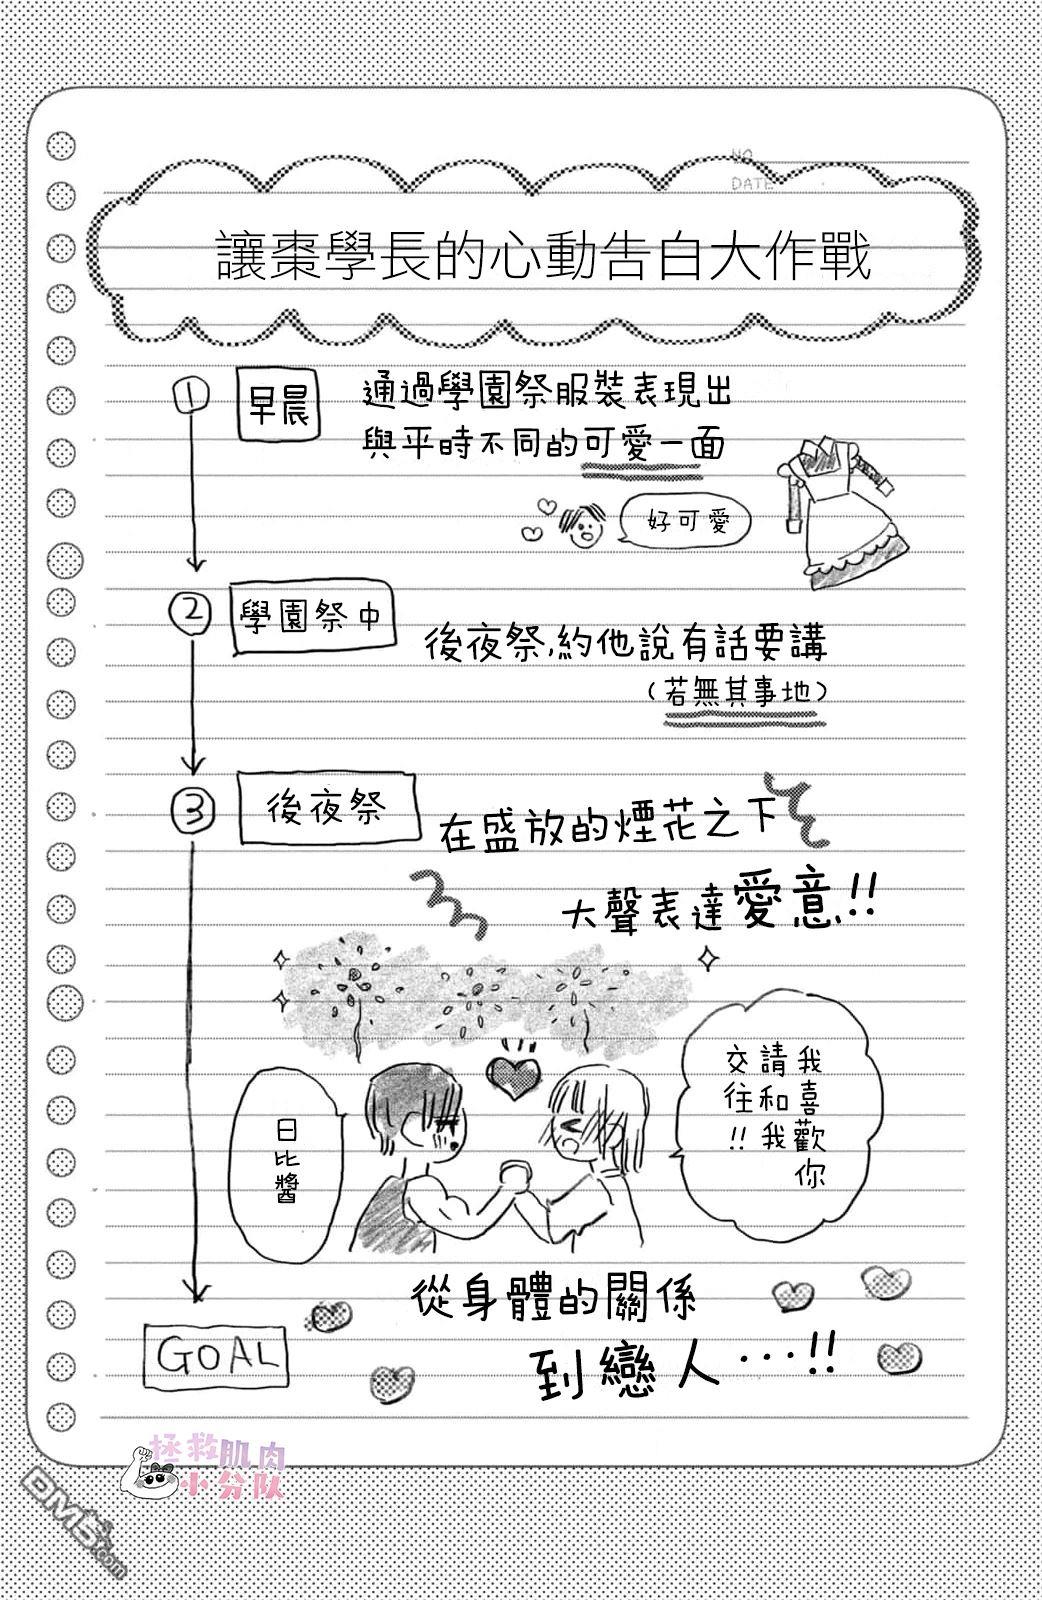 NO.
DATE
讓棗學長的心動告白大作戰
① 早晨
通過學園祭服裝表現出
與平時不同的可愛一面
好可愛
② 學園祭中
後夜祭,約他說有話要講
(若無其事地)
③ 後夜祭
在盛放的煙花之下
大聲表達愛意!!
我喜歡你
請和我
交往!!
日比醬
從身體的關係
到戀人…!!
GOAL
拯救肌肉
小分队
DM5.com